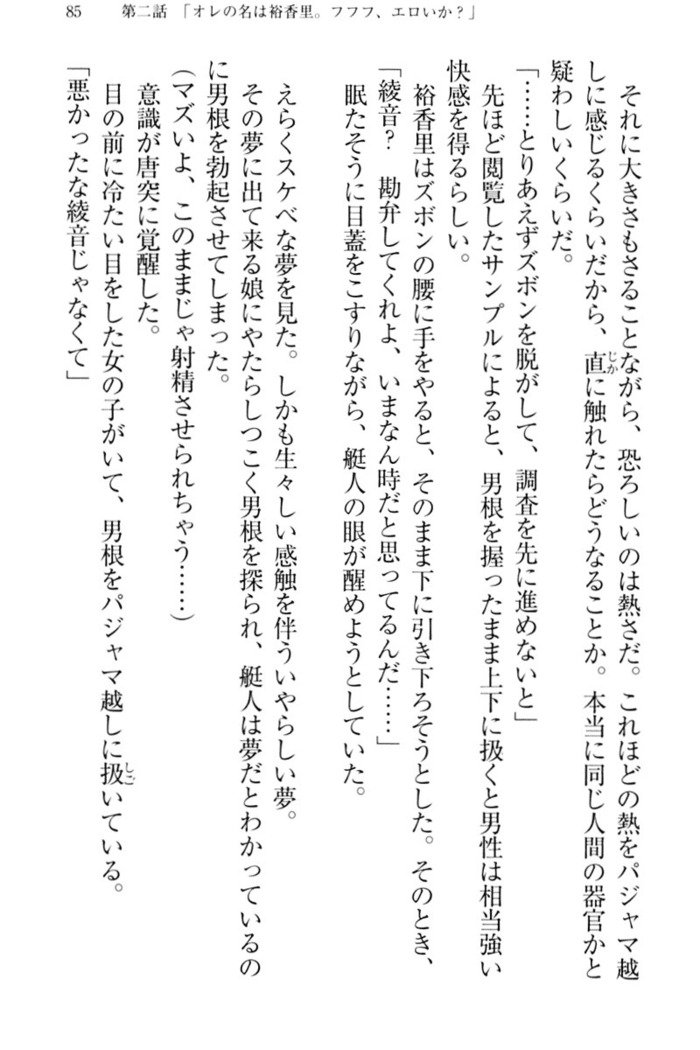 85　第二話　「オレの名は裕香里。フフフ、エロいか？」
　それに大きさもさることながら、恐ろしいのは熱さだ。これほどの熱をパジャマ越
しに感じるくらいだから、直に触れたらどうなることか。本当に同じ人間の器官かと
疑わしいくらいだ。
「……とりあえずズボンを脱がして、調査を先に進めないと」
　先ほど閲覧したサンプルによると、男根を握ったまま上下に扱くと男性は相当強い
快感を得るらしい。
　裕香里はズボンの腰に手をやると、そのまま下に引き下ろそうとした。そのとき、
「綾音？　勘弁してくれよ、いまなん時だと思ってるんだ……」
　眠たそうに目蓋をこすりながら、艇人の眼が醒めようとしていた。
　えらくスケベな夢を見た。しかも生々しい感触を伴ういやらしい夢。
　その夢に出て来る娘にやたらしつこく男根を探られ、艇人は夢だとわかっているの
に男根を勃起させてしまった。
（マズいよ、このままじゃ射精させられちゃう……）
　意識が唐突に覚醒した。
　目の前に冷たい目をした女の子がいて、男根をパジャマ越しに扱いている。
「悪かったな綾音じゃなくて」